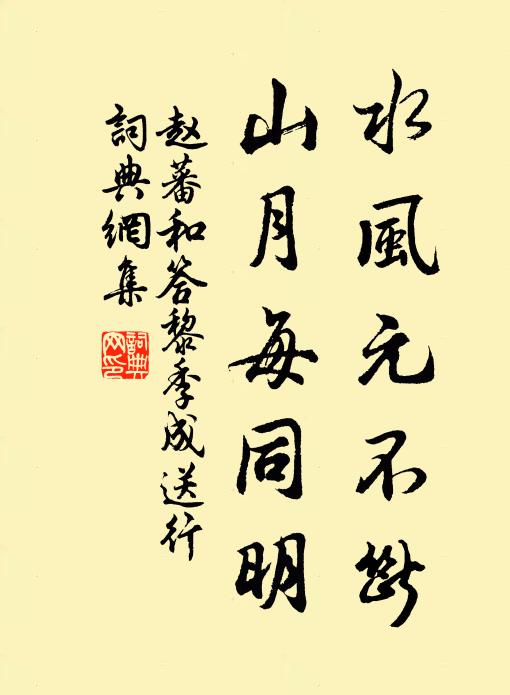 水風元不斷
山月每同明
赵蕃和答黎季成送行
詞典網集
詞典網印